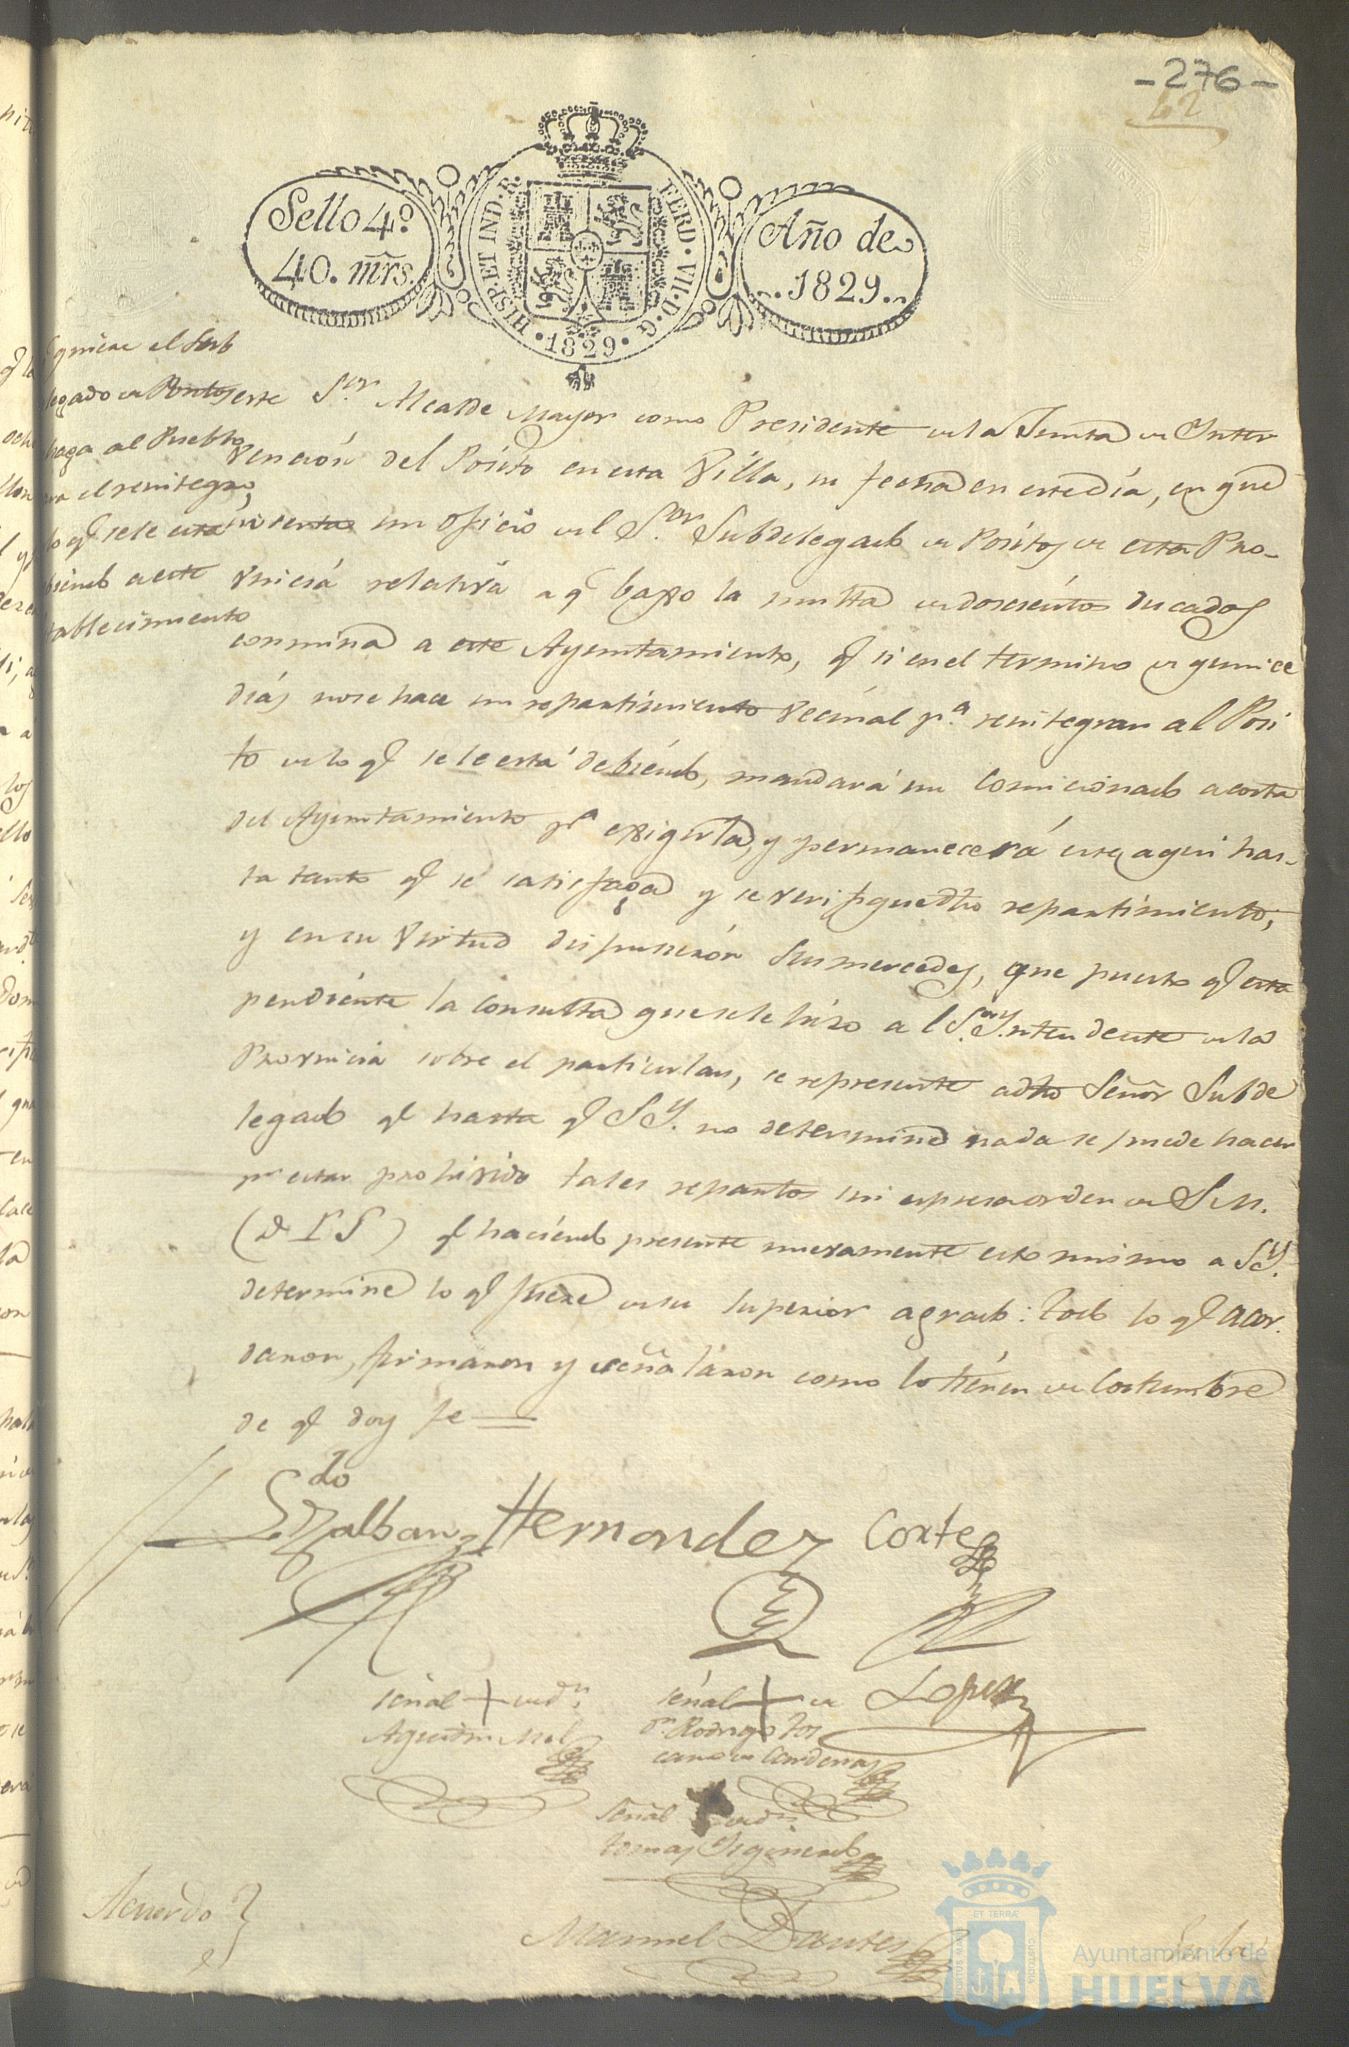 -276-
42
Sello 4º
40. mrs.
HISP. ET IND. R.
FERD. VII. D. G.
1829
Año de
1829.
quiere el Sub
legado de Positos
haga al Pueblo
el reintegro
lo q.e se le está
debiendo a este
tablecimiento
este S.or Alcalde Mayor como Presidente de la Junta de Inter
vención del Pósito en esta Villa, su fecha en este día, en que
inserta un oficio del S.or Subdelegado de Pósitos de esta Pro-
vincia relativa a q.e baxo la multa de doscientos ducados
conmina a este Ayuntamiento, q.e si en el termino de quince
días no se hace un repartimiento vecinal p.a reintegrar al Pósi
to de lo q.e se le está debiendo, mandará un Comicionado a costa
del Ayuntamiento p.a exigirla, y permanecerá este aquí has-
ta tanto q.e se satisfaga y se verifique dho repartimiento;
y en su virtud dispusieron Sus mercedes, que puesto q.e esta
pendiente la consulta que se le hizo a l S.or Yntendente de la
Provincia sobre el particular, se represente a dho Señor Subde
legado q.e hasta q.e S.Y. no determine nada se puede hacer
p.r estar prohivido tales repartos sin expresa orden de S. M.
(D. L. G) q.e haciendo presente nuevamente esto mismo a S.Y.
determine lo q.e fuere de su superior agrado: todo lo q.e acor.
daron, firmaron y señaláron como lo tienen de Costumbre
de q.e doy fe
L.do Balbanz Hernandez Corte
señal + de d.n
Agustin
señal + de
d.n Rodrigo Tos
cano de Cardenas
Lopez
Señal de d.n
tomas Ysquierdo
Manuel Dantes
Acuerdo
Ayuntamiento de
HUELVA